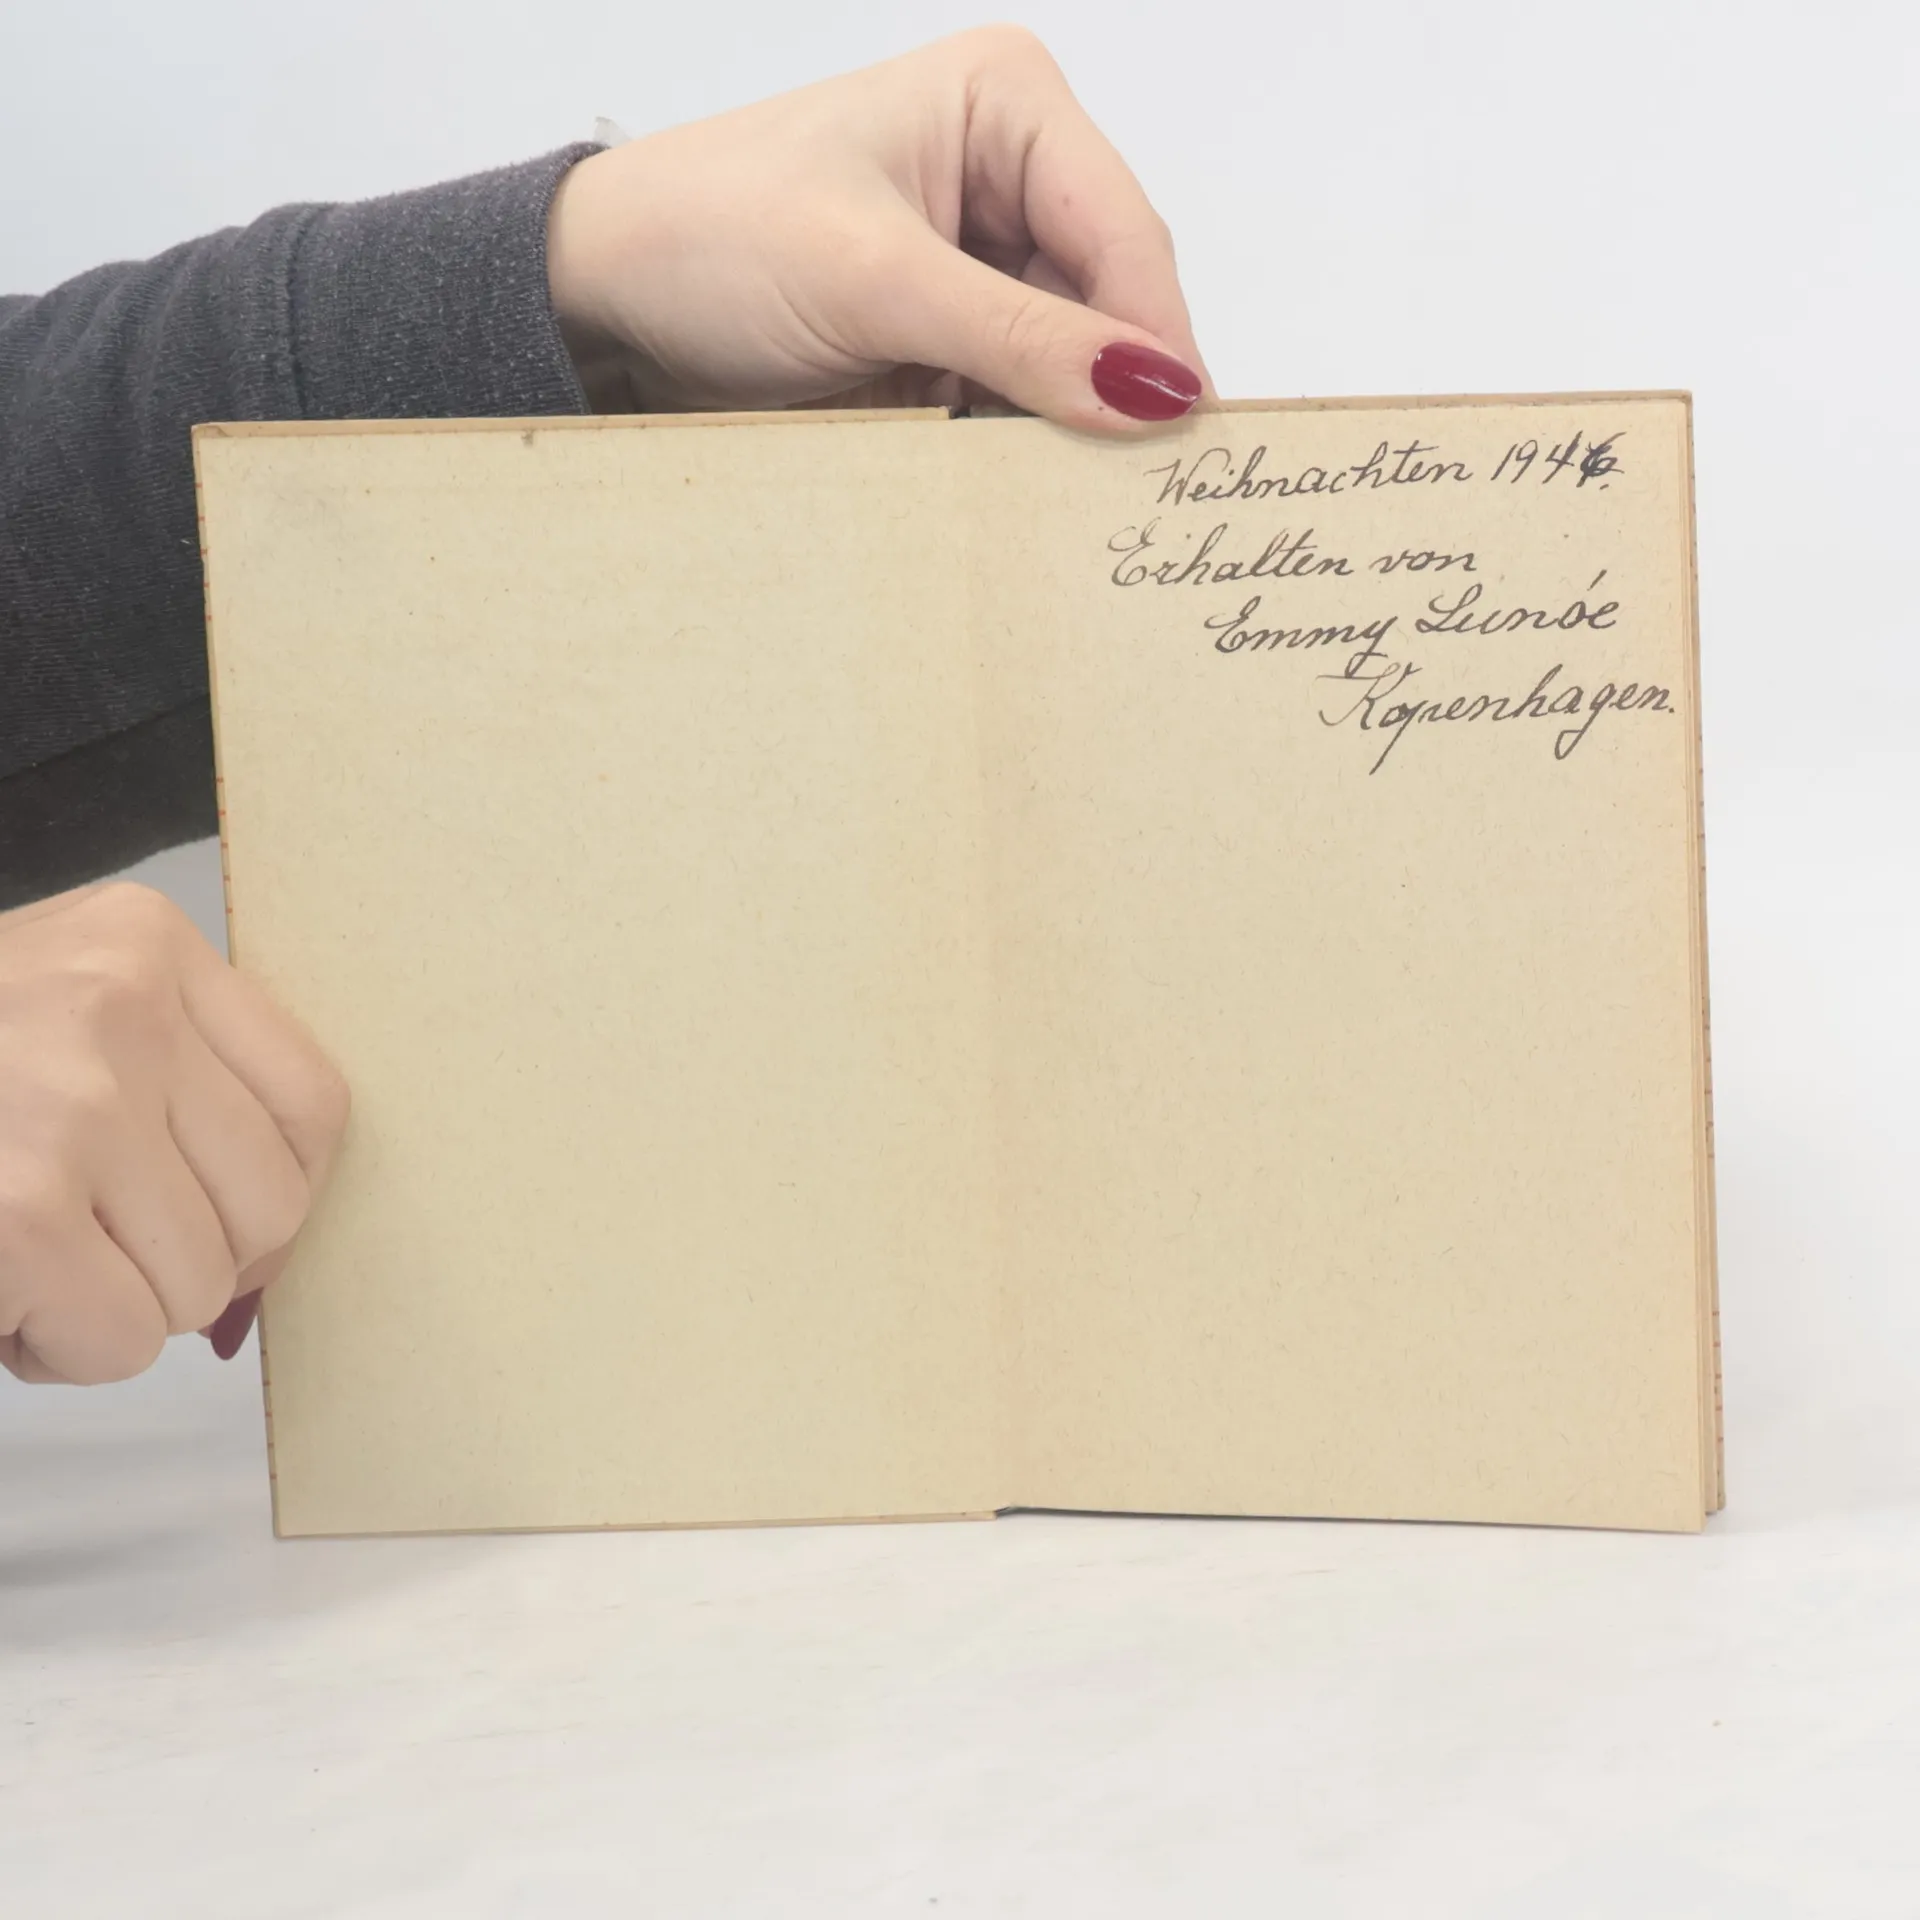 Weihnachten 1946.
Erhalten von
Emmy Lunóe
Kopenhagen.